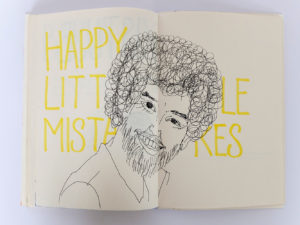 HAPPY
LITT LE
MISTA KES